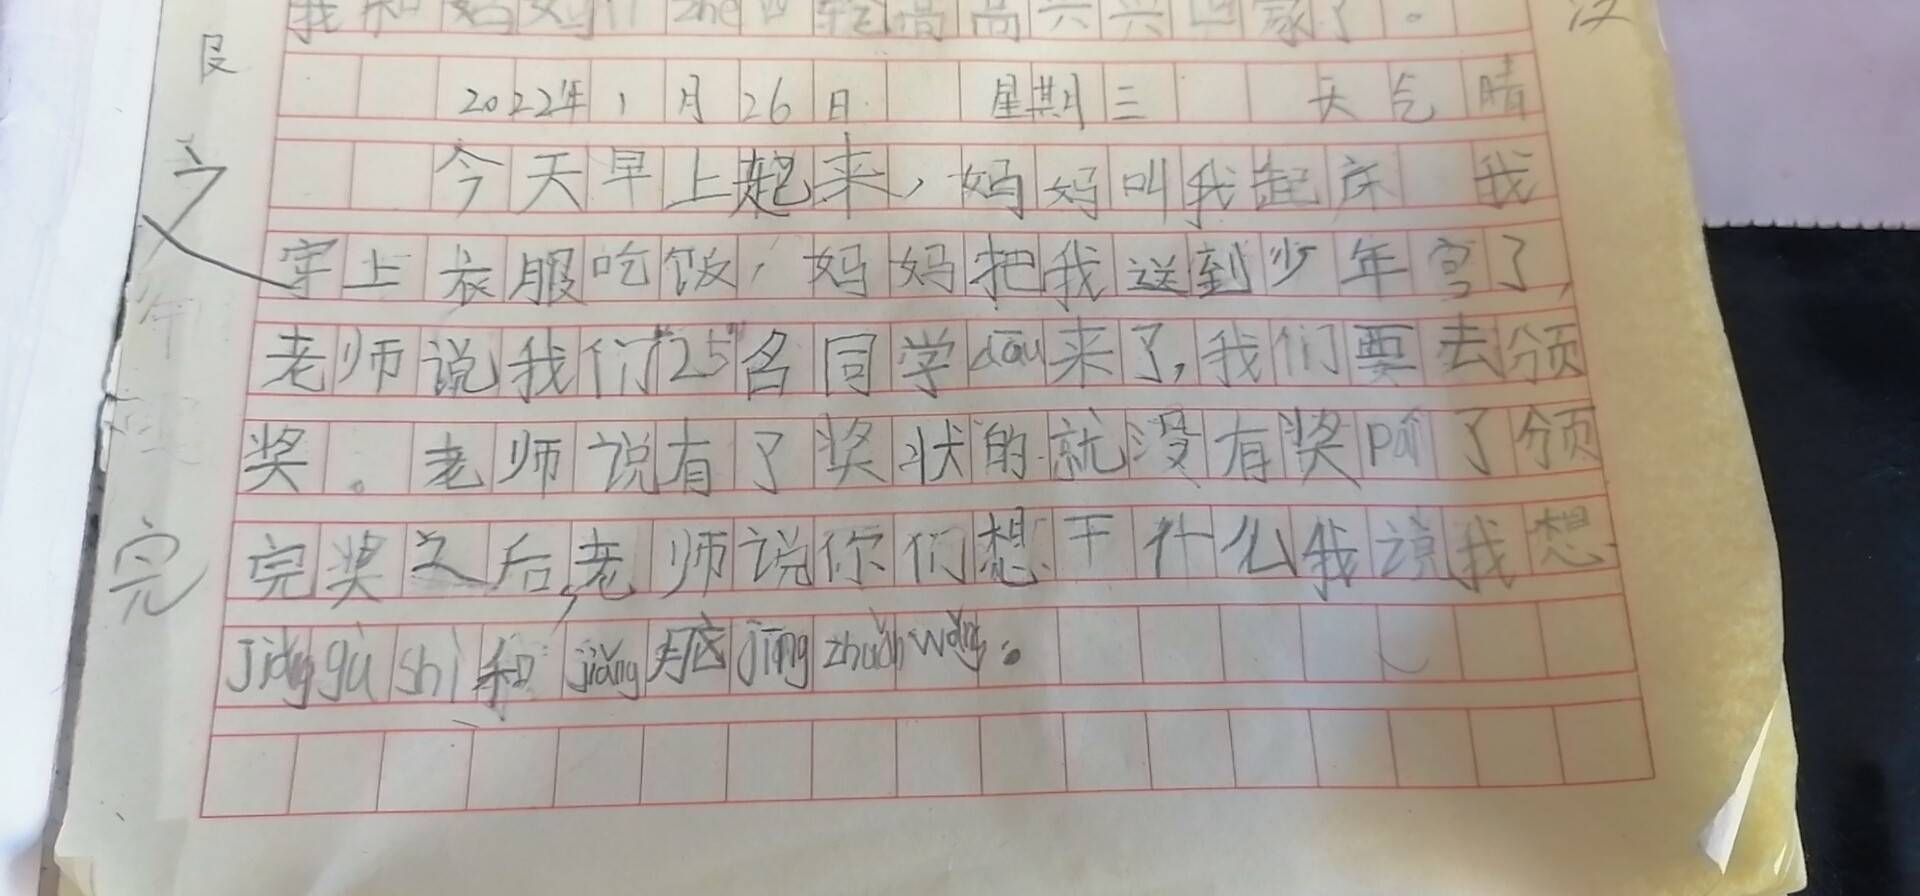 我和妈妈们zhe回轮高高兴兴回家了。
2022年1月26日 星期三 天气晴
今天早上起来，妈妈叫我起床 我
穿上衣服吃饭，妈妈把我送到少年宫了，
老师说我们"25"名同学dōu来了，我们要去颁
奖。老师说有了奖状的就没有奖pái了颁
完奖之后，老师说你们想干什么我说我想
jiǎng gù shì和jiǎng 底jǐng zhuàn wǎng。
完